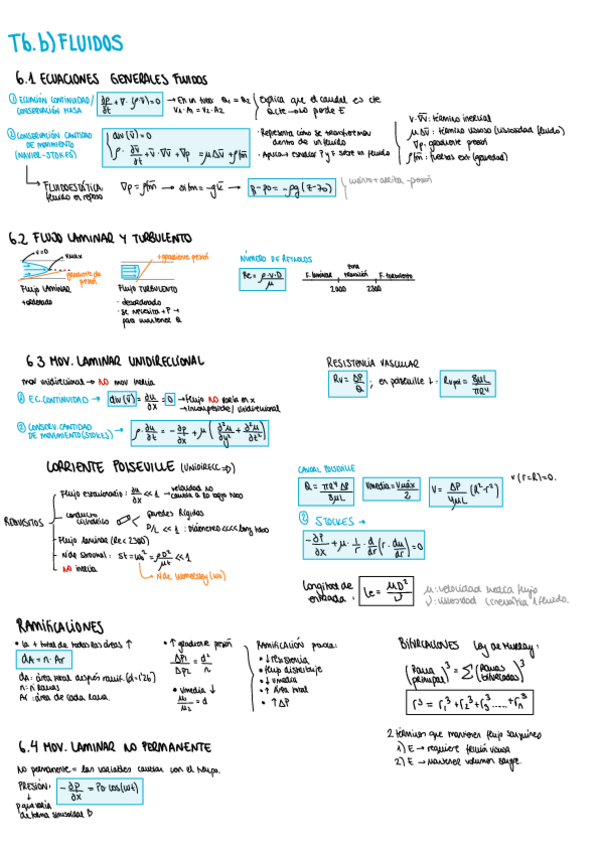 T6.b) FLUIDOS
6.1 ECUACIONES GENERALES FLUIDOS
① ECUACIÓN CONTINUIDAD/
CONSERVACIÓN MASA
∂ρ/∂t + ∇·(ρ·v̄)=0
→ En un tubo: Q1 = Q2
V1·A1 = V2·A2
Explica que el caudal es cte
Q cte → no pierde E
② CONSERVACIÓN CANTIDAD
DE MOVIMIENTO
(NAVIER-STOKES)
div(v̄)=0
ρ·∂v̄/∂t + v̄·∇v̄ + ∇p = μΔv̄ + ρf̄m
· Representa cómo se transfiere mov
dentro de un fluido
v·∇v̄: término inercial
μΔv̄: término viscoso (viscosidad fluido)
∇p: gradiente presión
ρf̄m: fuerzas ext (gravedad)
FLUIDOESTÁTICA
fluido en reposo
∇p = ρf̄m → si fm = -gk̄ → p-p0 = -ρg(z-z0)
6.2 FLUJO LAMINAR Y TURBULENTO
v=0
vmax
gradiente de
presión
Flujo LAMINAR
+ordenado
+gradiente presión
Flujo TURBULENTO
· desordenado
· se necesita +P →
para mantener Q
NÚMERO DE REYNOLDS
Re = ρ·v·D/μ
F. laminar
zona
transición
F. turbulento
2000
2300
6.3 MOV. LAMINAR UNIDIRECCIONAL
mov unidireccional → NO mov inercia
① EC. CONTINUIDAD → div(v̄) = ∂u/∂x = 0 → Flujo NO varía en x
→ Incompresible/unidireccional
② CONSERV. CANTIDAD
DE MOVIMIENTO (STOKES) →
ρ·∂u/∂t = -∂p/∂x + μ(∂²u/∂y² + ∂²u/∂z²)
RESISTENCIA VASCULAR
Rv = ΔP/Q ; en poiseuille L: Rv poi = 8μL/πR⁴
CORRIENTE POISEUILLE (UNIDIRECC ⇒)
REQUISITOS
Flujo estacionario: ∂u/∂x << 1 → velocidad no
cambia a lo largo tubo
conducto
cilíndrico
paredes rígidas
D/L << 1 : Diámetro <<<< long tubo
Flujo laminar (Re < 2300)
Nº de strouhal: St = wo² = ρD²/μt << 1
NO inercia
Nº de Womersley (wo)
CAUDAL POISEUILLE
Q = πR⁴ΔP/8μL
Vmedia = Vmáx/2
V = ΔP/4μL (R²-r²)
v(r=R)=0.
② STOCKES →
-∂p/∂x + μ·1/r·d/dr(r·du/dr)=0
Longitud de
entrada:
Le = μD²/ν
μ: velocidad media flujo
ν: viscosidad cinemática fluido.
RAMIFICACIONES
· la + total de todas las áreas ↑
dA = n·Ar
dA: área total después ramif. (d=1'26)
n: nº ramas
Ar: área de cada rama.
· ↑ gradiente presión
ΔP1/ΔP2 = d²/n
· Vmedia ↓
μ1/μ2 = d
RAMIFICACIÓN para:
· ↓ resistencia
· flujo distribuye
· ↓ Vmedia
· ↑ área total
· ↑ ΔP
BIFURCACIONES Ley de Murray:
(Rama principal)³ = Σ(Ramas bifurcadas)³
r³ = r1³ + r2³ + r3³ ..... + rn³
2 términos que mantienen flujo sanguíneo
1) E → requiere fricción viscosa
2) E → mantener volumen sangre.
6.4 MOV. LAMINAR NO PERMANENTE
No permanente = las variables cambian con el tiempo.
PRESIÓN:
-∂p/∂x = P0 cos(wt)
p que varía
de forma sinusoidal